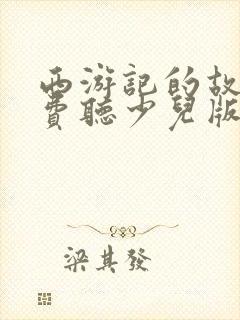 西游記的故
費聽少兒版
梁其發